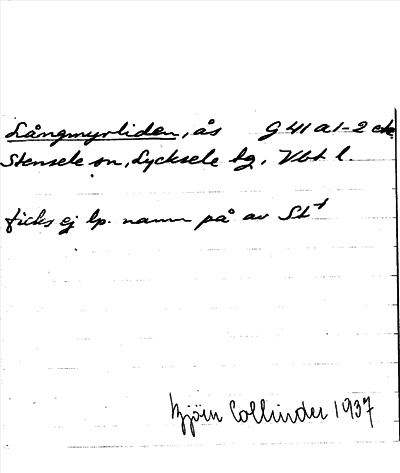 Långmyrliden, ås G 41 a 1-2 etc
Stensele sn, Lycksele tg, Vbt l.
ficks ej lp. namn på av St
Björn Collinder 1937